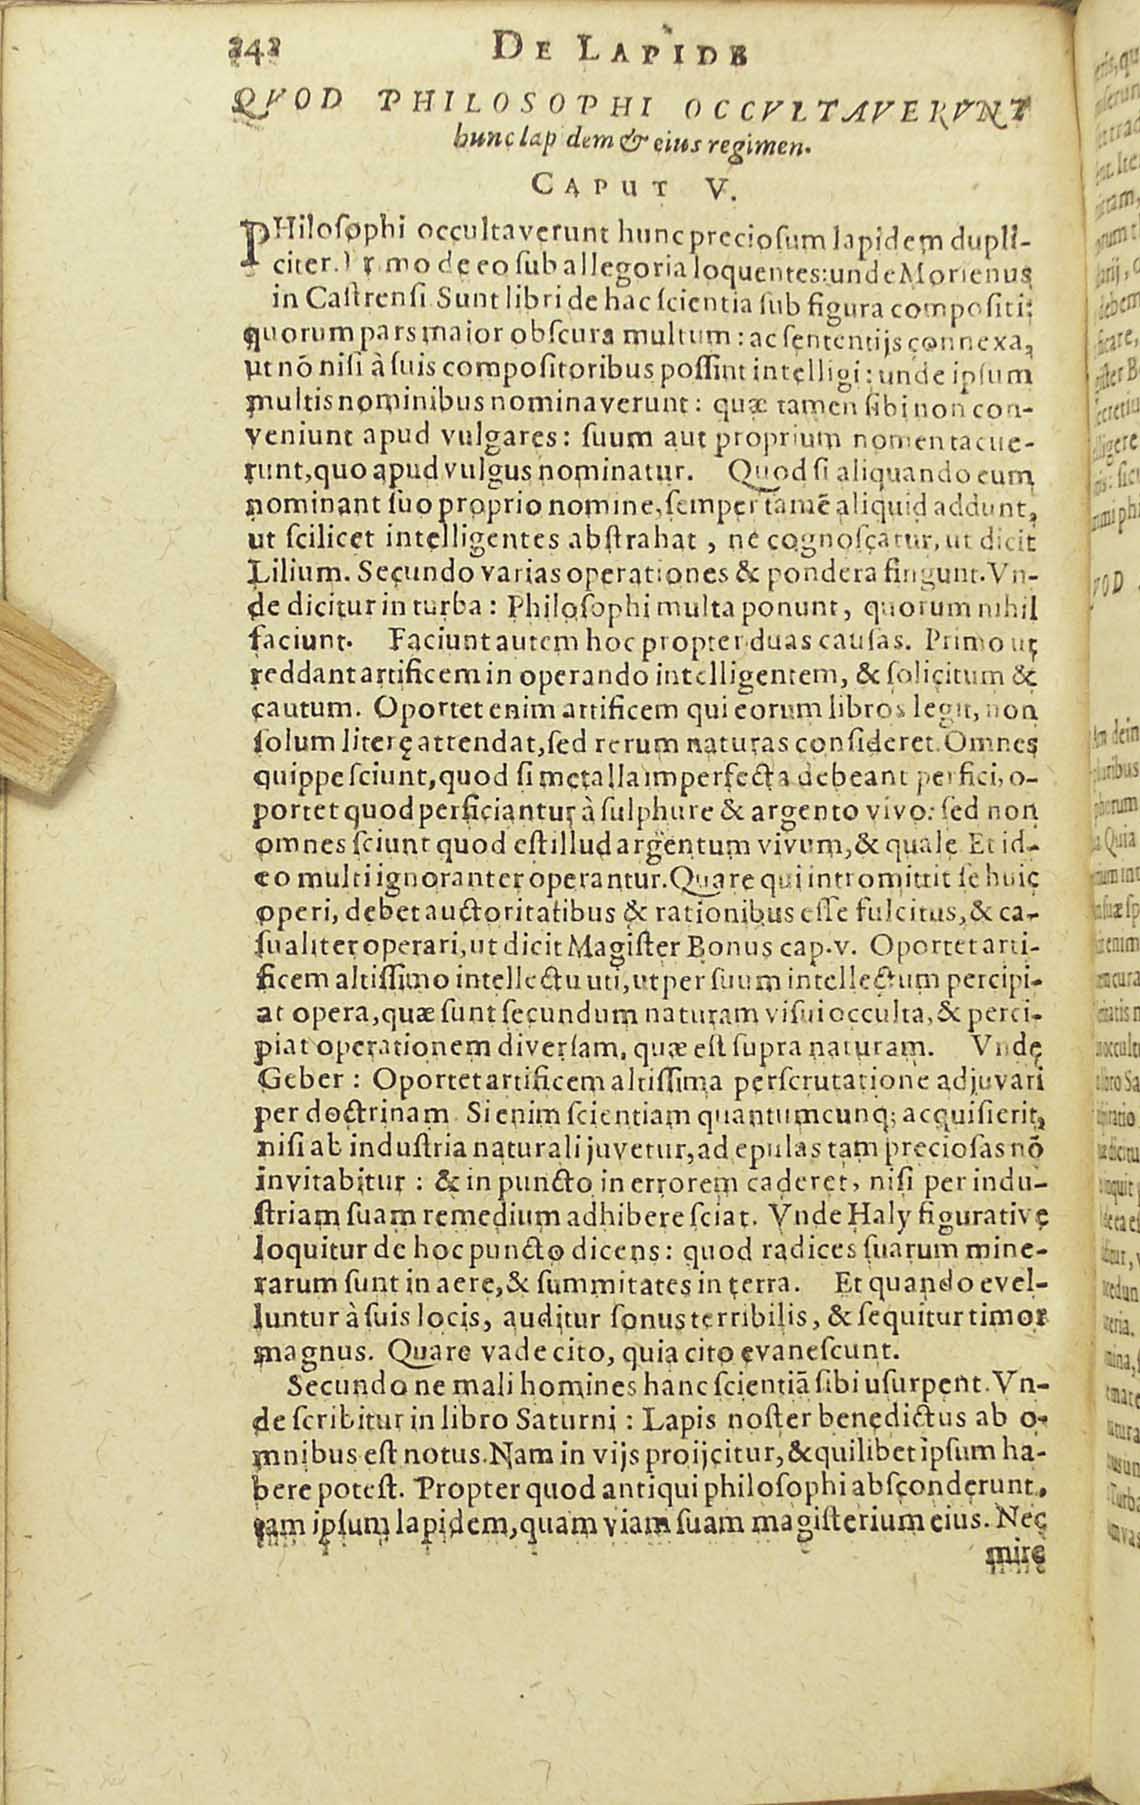 242 DE LAPIDE
QVOD PHILOSOPHI OCCVLTAVERVNT
hunc lapidem & eius regimen.
CAPUT V.
PHilosophi occultaverunt hunc preciosum lapidem dupli-
citer. Primo de eo sub allegoria loquentes: unde Morienus
in Castrensi. Sunt libri de hac scientia sub figura compositi:
quorum pars maior obscura multum: ac sententijs connexa,
ut nō nisi à suis compositoribus possint intelligi: unde ipsum
multis nominibus nominaverunt: quæ tamen sibi non con-
veniunt apud vulgares: suum aut proprium nomen tacue-
runt, quo apud vulgus nominatur. Quod si aliquando eum
nominant suo proprio nomine, semper tamē aliquid addunt,
ut scilicet intelligentes abstrahat, ne cognoscatur, ut dicit
Lilium. Secundo varias operationes & pondera fingunt. Vn-
de dicitur in turba: Philosophi multa ponunt, quorum nihil
faciunt. Faciunt autem hoc propter duas causas. Primo ut
reddant artificem in operando intelligentem, & solicitum &
cautum. Oportet enim artificem qui eorum libros legit, non
solum literę attendat, sed rerum naturas consideret. Omnes
quippe sciunt, quod si metalla imperfecta debeant perfici, o-
portet quod perficiantur à sulphure & argento vivo: sed non
omnes sciunt quod est illud argentum vivum, & quale. Et id-
eo multi ignoranter operantur. Quare qui intromittit se huic
operi, debet auctoritatibus & rationibus esse fulcitus, & ca-
sualiter operari, ut dicit Magister Bonus cap. v. Oportet arti-
ficem altissimo intellectu uti, ut per suum intellectum percipi-
at opera, quæ sunt secundum naturam visui occulta, & perci-
piat operationem diversam, quæ est supra naturam. Vnde
Geber: Oportet artificem altissima perscrutatione adjuvari
per doctrinam. Si enim scientiam quantumcunq; acquisierit,
nisi ab industria naturali juvetur, ad epulas tam preciosas nō
invitabitur: & in puncto in errorem caderet, nisi per indu-
striam suam remedium adhibere sciat. Vnde Haly figurative
loquitur de hoc puncto dicens: quod radices suarum mine-
rarum sunt in aere, & summitates in terra. Et quando evel-
luntur à suis locis, auditur sonus terribilis, & sequitur timor
magnus. Quare vade cito, quia cito evanescunt.
Secundo ne mali homines hanc scientiā sibi usurpent. Vn-
de scribitur in libro Saturni: Lapis noster benedictus ab o-
mnibus est notus. Nam in vijs proijcitur, & quilibet ipsum ha-
bere potest. Propter quod antiqui philosophi absconderunt,
tam ipsum lapidem, quam viam suam magisterium eius. Nec
mire